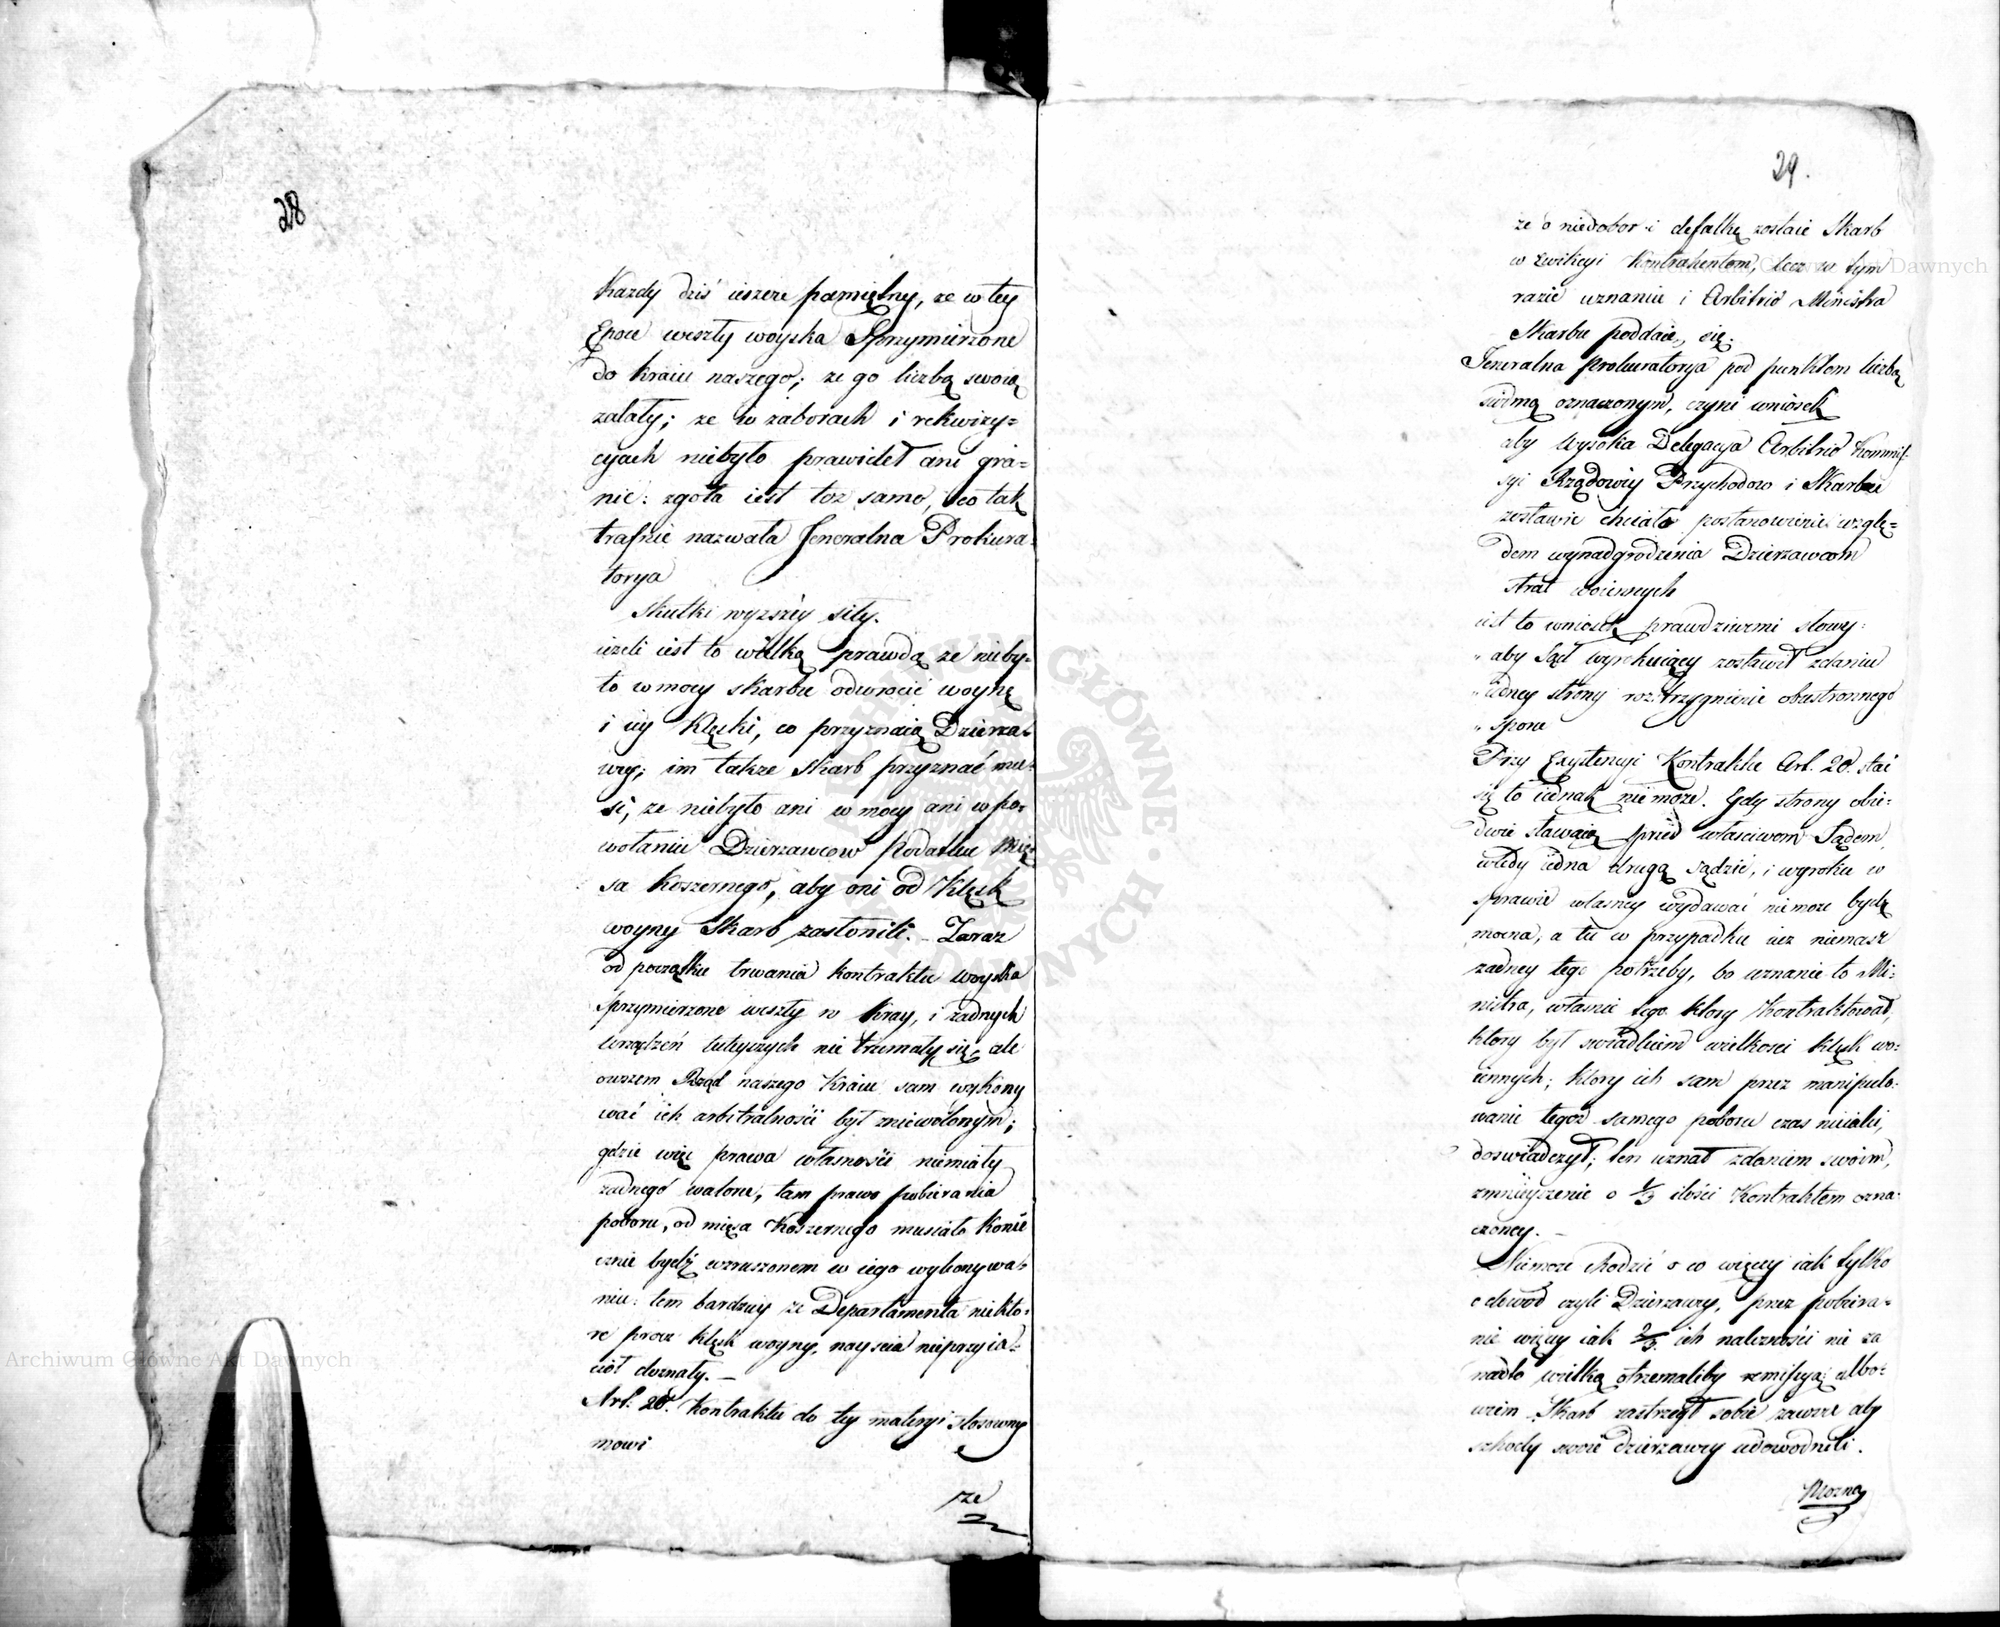 28
Kazdy dziś ieszcze pamiętny, ze w tey
Epoce weszły woyska Sprzymierzone
do kraiu naszego; ze go liczbą swoią
zalały; ze w zaborach i rekwizy=
cyach niebyło prawideł ani gra=
nic: zgoła iest toz samo, co tak
trafnie nazwała Jeneralna Prokura=
torya
Skutki wyzszéy siły.
ieżeli iest to wielką prawdą ze nieby=
ło w mocy skarbu odwrocić woynę
i iey Klęski, co przyznaią Dzierza=
wcy; im także Skarb przyznać mu=
si, ze niebyło ani w mocy ani w po=
wołaniu Dzierzawcow Podatku Mię=
sa Koszernego, aby oni od Klęsk
woyny Skarb zasłonili. - Zaraz
od początku trwania kontraktu woyska
Sprzymierzone weszły w Kray, i żadnych
urządzeń tuteyszych nie trzymały się, ale
owszem Rząd naszego Kraiu sam wykony
wać ich arbitralności był zniewolonym;
gdzie więc prawa własności niemiały
żadnego waloru, tam prawo pobierania
poboru, od mięsa Koszernego musiało Konie
cznie bydź wzruszonem w iego wykonywa=
niu: tem bardziey ze Departamenta niekto=
re procz klęsk woyny, nayścia nieprzyia=
cioł doznały. -
Art: 20. Kontraktu do tey materyi stosowny
mowi
ze
29.
ze o niedobor i defalkę zostaie Skarb
w Ewikcyi Kontrahentom, lecz w tym
razie uznaniu i Arbitrio Ministra
Skarbu poddaie, się.
Jeneralna Prokuratorya pod punktem liczbą
siódmą oznaczonym, czyni wniosek
aby Wysoka Delegacya Arbitrio Kommis=
syi Rządowéy Przychodow i Skarbu
zostawić chciała postanowienie wzglę=
dem wynadgrodzenia Dzierzawcom
strat woiennych
iest to wniosek prawdziwemi słowy:
" aby Sąd wyrokuiący zostawił zdaniu
" iedney strony rozstrzygnienie obustronnego
" sporu
Przy Exystencyi Kontraktu Art. 20. stać
się to iednak nie może. Gdy strony obie=
dwie stawaią przed właściwem Sądem,
wtedy iedna drugą sądzić, i wyroku w
sprawie własney wydawać nie moze bydź
mocna, a tu w przypadku iuz niemasz
żadney tego potrzeby, bo uznanie to Mi=
nistra, własnie tego ktory Kontraktował,
ktory był swiadkiem wielkosci klęsk wo=
iennych; ktory ich sam przez manipulo=
wanie tegoż samego poboru czas nieiaki,
doswiadczył; ten uznał zdaniem swoim,
zmnieyszenie o 1/3 ilości Kontraktem ozna=
czoney. -
Niemoze chodzić o co więcey iak tylko
o dowód czyli Dzierzawcy, przez pobiera=
nie więcey iak 2/3 ich należności nie za
nadto wielką otrzymaliby remissyą: albo=
wiem Skarb zastrzegł sobie zawsze aby
szkody swoie dzierzawcy udowodnili.
Mozna
Archiwum Główne Akt Dawnych